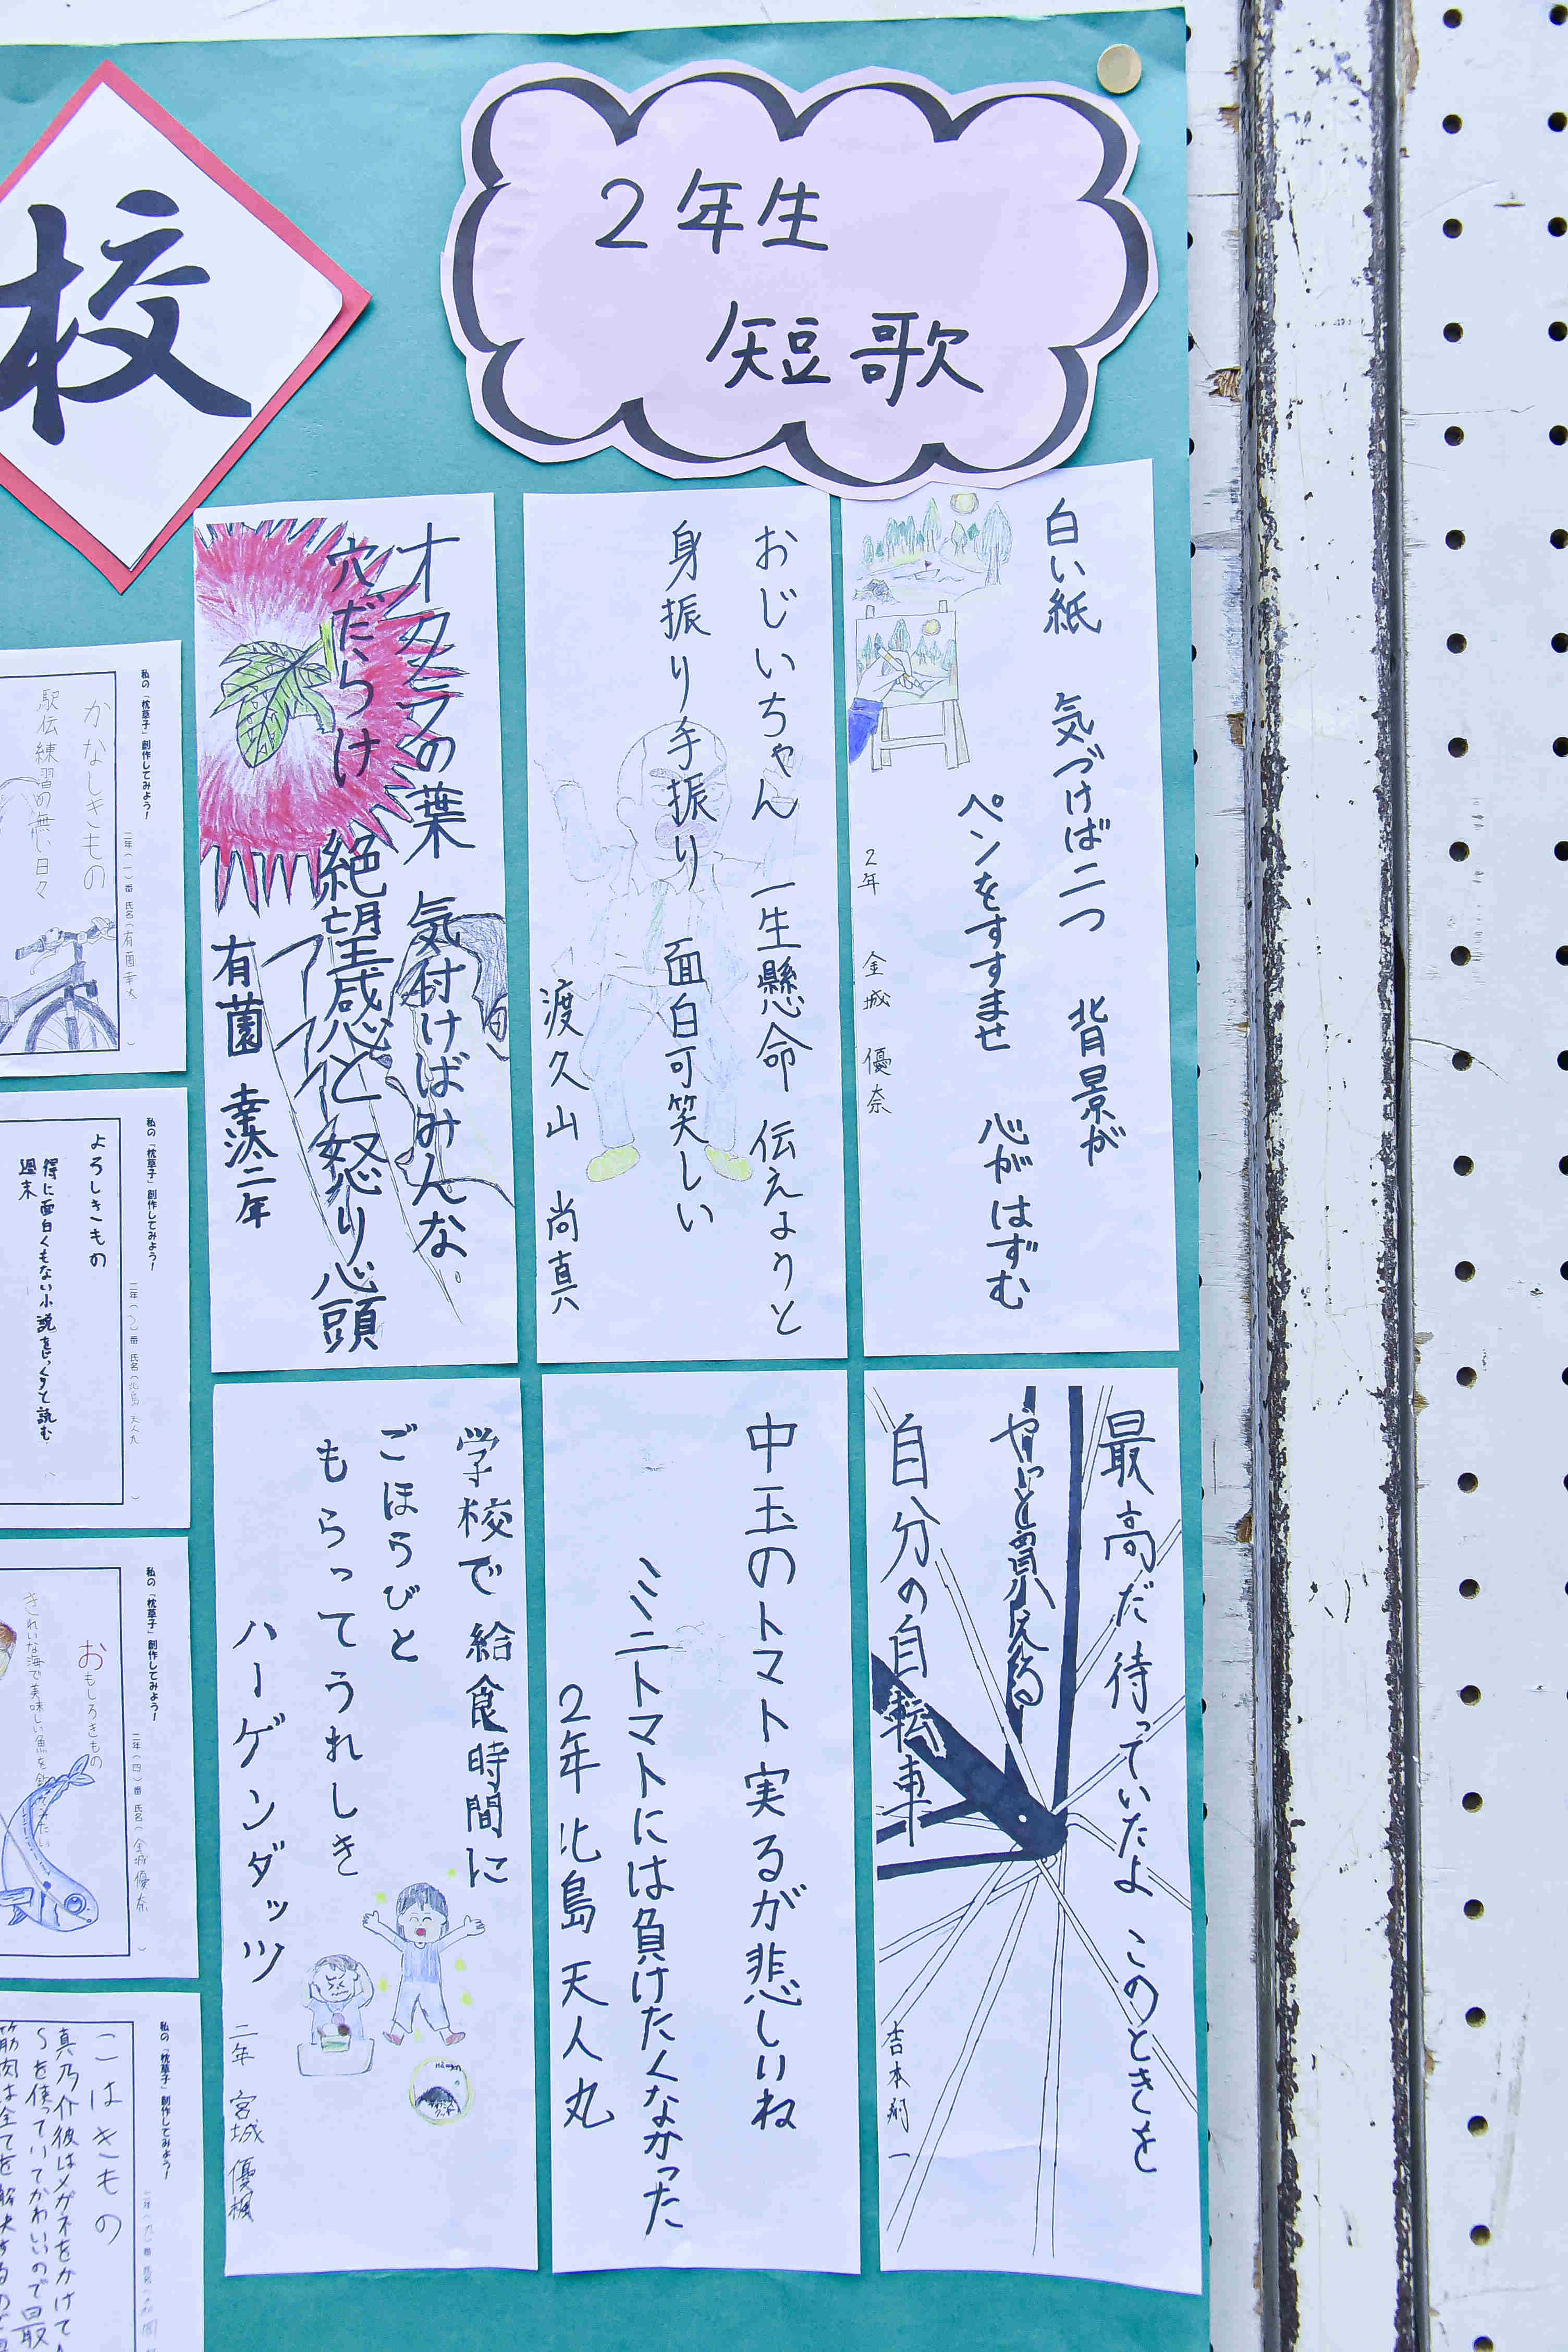 校
2年生
短歌
白い紙 気づけば二つ 背景が
ペンをすすませ 心がはずむ
2年 金城 優奈
おじいちゃん 一生懸命 伝えようと
身振り手振り 面白可笑しい
渡久山 尚真
オクラの葉 気付けばみんな
穴だらけ 絶望感と怒り心頭
有薗 幸汰 二年
最高だ 待っていたよ このときを
やっと買える
自分の自転車
吉本 一
中玉のトマト実るが悲しいね
ミニトマトには負けたくなかった
2年 北島 天人丸
学校で 給食時間に
ごほうびと
もらってうれしき
ハーゲンダッツ
二年 宮城 優楓
私の「枕草子」創作してみよう!
二年(一)番 氏名(有薗幸汰)
かなしきもの
駅伝練習の無い日々
私の「枕草子」創作してみよう!
二年(二)番 氏名(北島 天人丸)
よろしきもの
得に面白くもない小説をじっくりと読む
週末
私の「枕草子」創作してみよう!
二年(四)番 氏名(金城優奈)
おもしろきもの
きれいな海で美味しい魚を
私の「枕草子」創作してみよう!
こはきもの
真乃介彼はメガネをかけて
を使っていてかわいいので最
筋肉は全てを解決するので